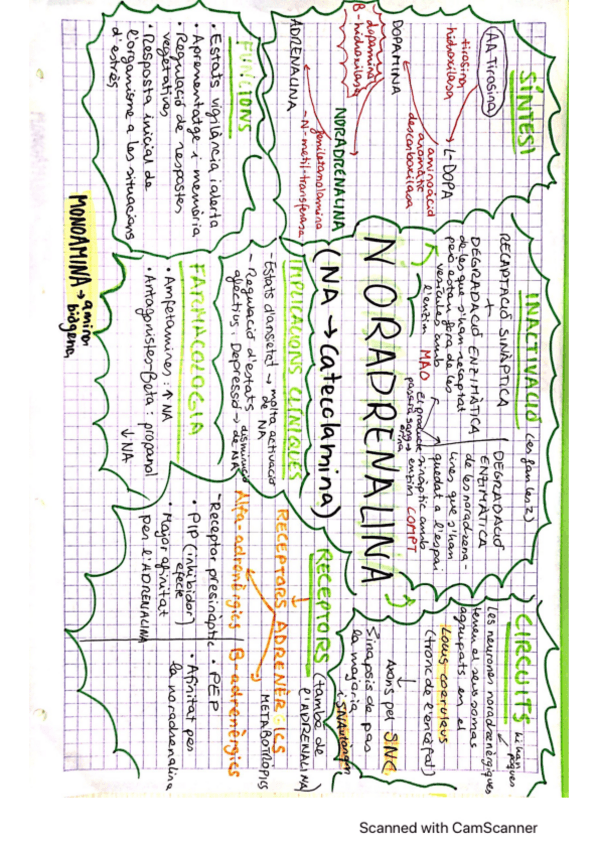 SÍNTESI
AA-Tirosina
tirosina
hidroxilasa
L-DOPA
aminoàcid
aromàtic
descarboxilasa
DOPAMINA
dopamina
B-hidroxilasa
NORADRENALINA
feniletanolamina
-N-metil-transferasa
ADRENALINA
FUNCIONS
• Estats vigilància i alerta
• Aprenentatge i memòria
• Regulació de respostes
vegetatives
• Resposta inicial de
l'organisme a les situacions
d'estrès
INACTIVACIÓ (es fan les 2)
RECAPTACIÓ SINÀPTICA
+
DEGRADACIÓ ENZIMÀTICA
de les que s'han recaptat
però estan fora de les
vesícules amb
l'enzim MAO
DEGRADACIÓ
ENZIMÀTICA
de les noradrena-
lines que s'han
quedat a l'espai
sinàptic amb
enzim COMT
El producte
passa a sang →
orina
NORADRENALINA
(NA → Catecolamina)
IMPLICACIONS CLÍNIQUES
- Estats d'ansietat → molta activació
de NA
- Regulació d'estats
afectius: Depressió → disminució
de NA
FARMACOLOGIA
• Amfetamines: ↑ NA
• Antagonistes-Beta: propanol
↓ NA
MONOAMINA → amina
biògena
CIRCUITS hi han
poques
Les neurones noradrenèrgiques
tenen el seus somes
agrupats en el
Locus coeruleus
(tronc de l'encèfal)
↓
Axons pel SNC
i SNAutònom
Sinapsis de pas
la majoria
RECEPTORS (també de
l'ADRENALINA)
↓
RECEPTORS ADRENÈRGICS
METABOTRÒPICS
Alfa-adrenèrgics
-Receptor presinàptic
• PIP (inhibidor)
efecte
• Major afinitat
per l'ADRENALINA
B-adrenèrgics
• PEP
• Afinitat per
la noradrenalina
Scanned with CamScanner